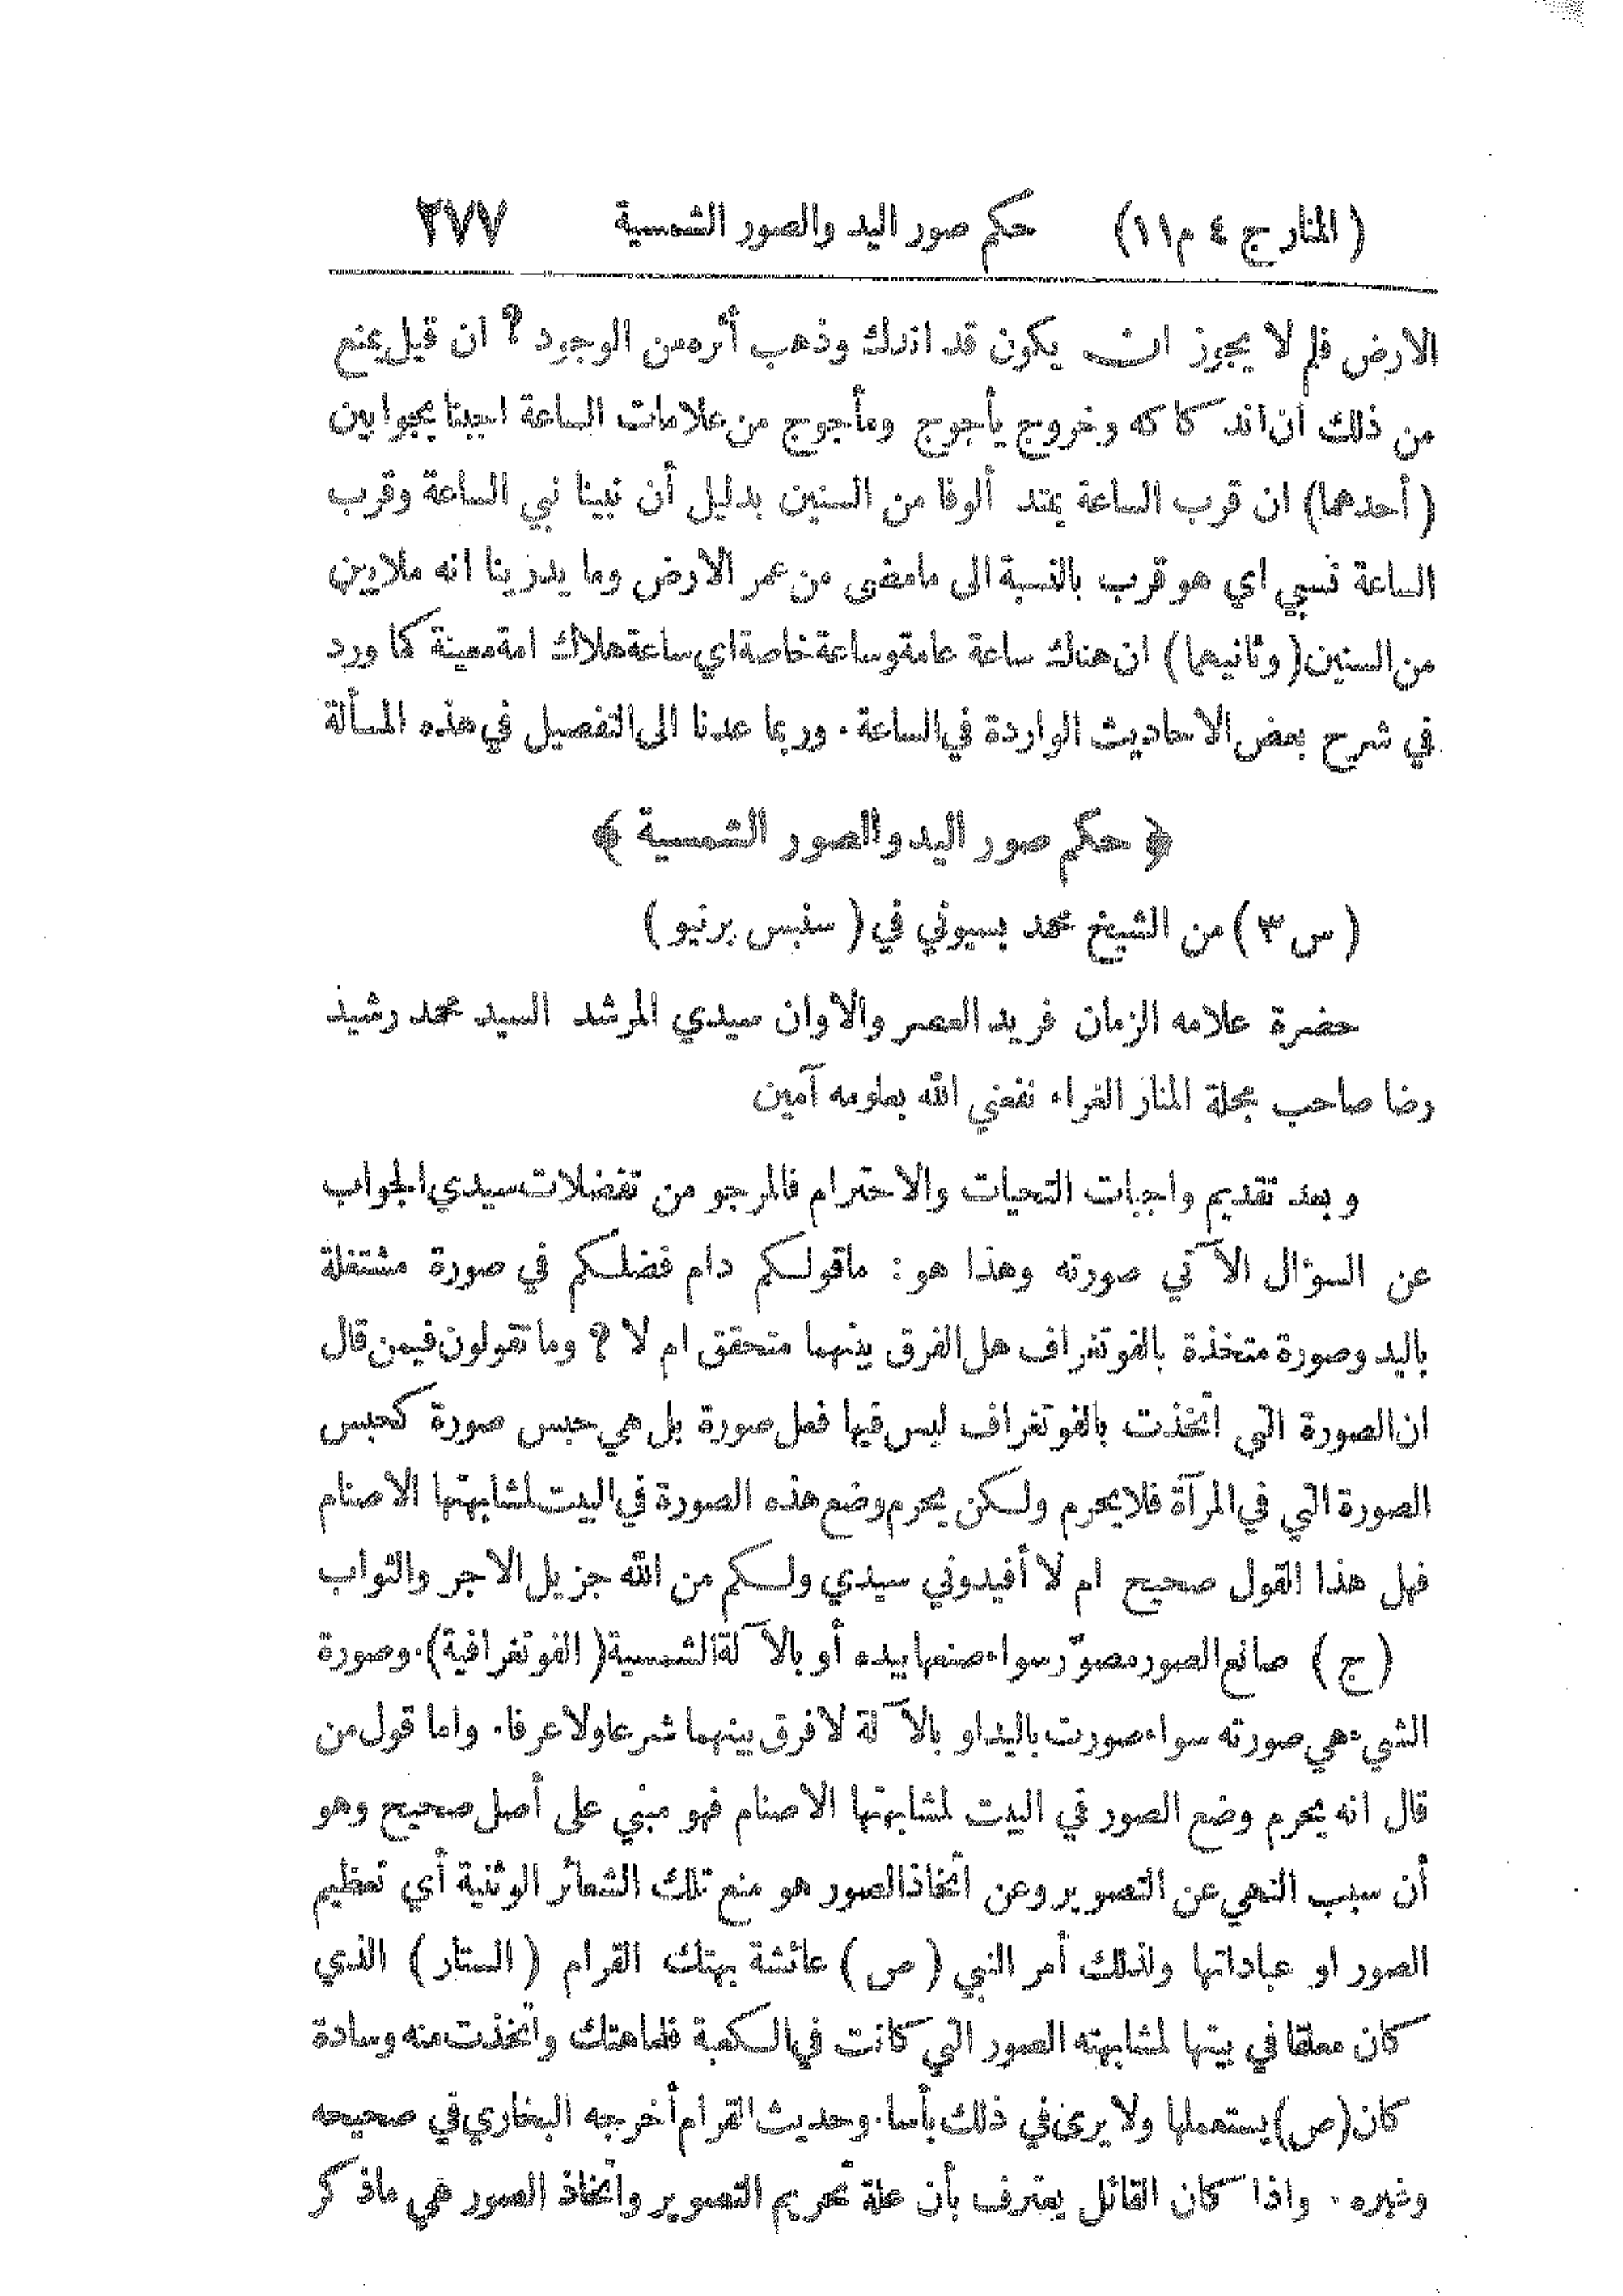 (المنار ج ٤ م ١١) حكم صور اليد والصور الشمسية ٢٧٧
الارض فلم لا يجوز ان يكون قد اندك وذهب أثره من الوجود ؟ ان قيل يمنع
من ذلك ان اندكاكه وخروج يأجوج ومأجوج من علامات الساعة اجبنا بجوابين
(أحدهما) ان قرب الساعة يمتد ألوفا من السنين بدليل أن نبينا نبي الساعة وقرب
الساعة نسبي اي هو قرب بالنسبة الى ما مضى من عمر الارض وما يدرينا انه ملايين
من السنين (وثانيهما) ان هناك ساعة عامة وساعة خاصة اي ساعة هلاك امة معينة كما ورد
في شرح بعض الاحاديث الواردة في الساعة . وربما عدنا الى التفصيل في هذه المسألة
﴿ حكم صور اليد والصور الشمسية ﴾
(س ٣) من الشيخ محمد بسيوني في (سنبس برنيو)
حضرة علامه الزمان فريد العصر والأوان سيدي المرشد السيد محمد رشيد
رضا صاحب مجلة المنار الغراء نفعني الله بعلومه آمين
وبعد تقديم واجبات التحيات والاحترام فالمرجو من تفضلات سيدي الجواب
عن السؤال الآتي صورته وهذا هو : ماقولكم دام فضلكم في صورة مشتغلة
باليد وصورة متخذة بالفوتغراف هل الفرق بينهما متحقق ام لا ؟ وما تقولون فيمن قال
ان الصورة التي اتخذت بالفوتغراف ليس فيها فعل صورة بل هي حبس صورة كحبس
الصورة التي في المرآة فلا يحرم ولكن يحرم وضع هذه الصورة في البيت لمشابهتها الاصنام
فهل هذا القول صحيح ام لا أفيدوني سيدي ولكم من الله جزيل الاجر والثواب
(ج) صانع الصور مصوّر سواء صنعها بيده أو بالآلة الشمسية (الفوتغرافية) . وصورة
الشيء هي صورته سواء صورت باليد او بالآلة لا فرق بينهما شرعا ولا عرفا . واما قول من
قال انه يحرم وضع الصور في البيت لمشابهتها الاصنام فهو مبني على أصل صحيح وهو
أن سبب النهي عن التصوير وعن اتخاذ الصور هو منع تلك الشعائر الوثنية أي تعظيم
الصور او عباداتها ولذلك أمر النبي (ص) عائشة بهتك القرام (الستار) الذي
كان معلقا في بيتها لمشابهته الصور التي كانت في الكعبة فلما هتك واتخذت منه وسادة
كان (ص) يستعملها ولا يرى في ذلك بأسا . وحديث القرام أخرجه البخاري في صحيحه
وغيره . واذا كان القائل يعترف بأن علة تحريم التصوير واتخاذ الصور هي ماذكر